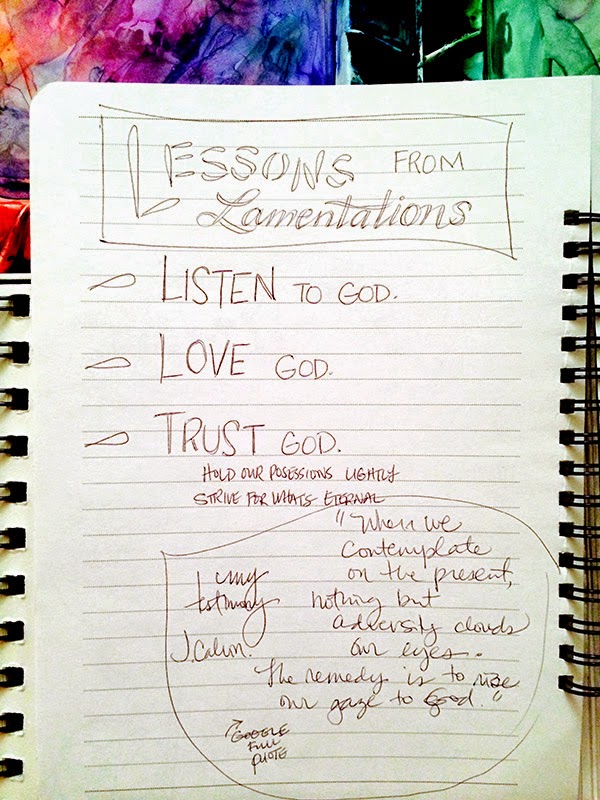 LESSONS FROM
Lamentations
LISTEN TO GOD.
LOVE GOD.
TRUST GOD.
HOLD OUR POSESSIONS LIGHTLY
STRIVE FOR WHATS ETERNAL
"When we
contemplate
on the present,
nothing but
adversity clouds
our eyes.
The remedy is to raise
our gaze to God."
my
testimony
J. Calvin.
GOOGLE
FULL
QUOTE